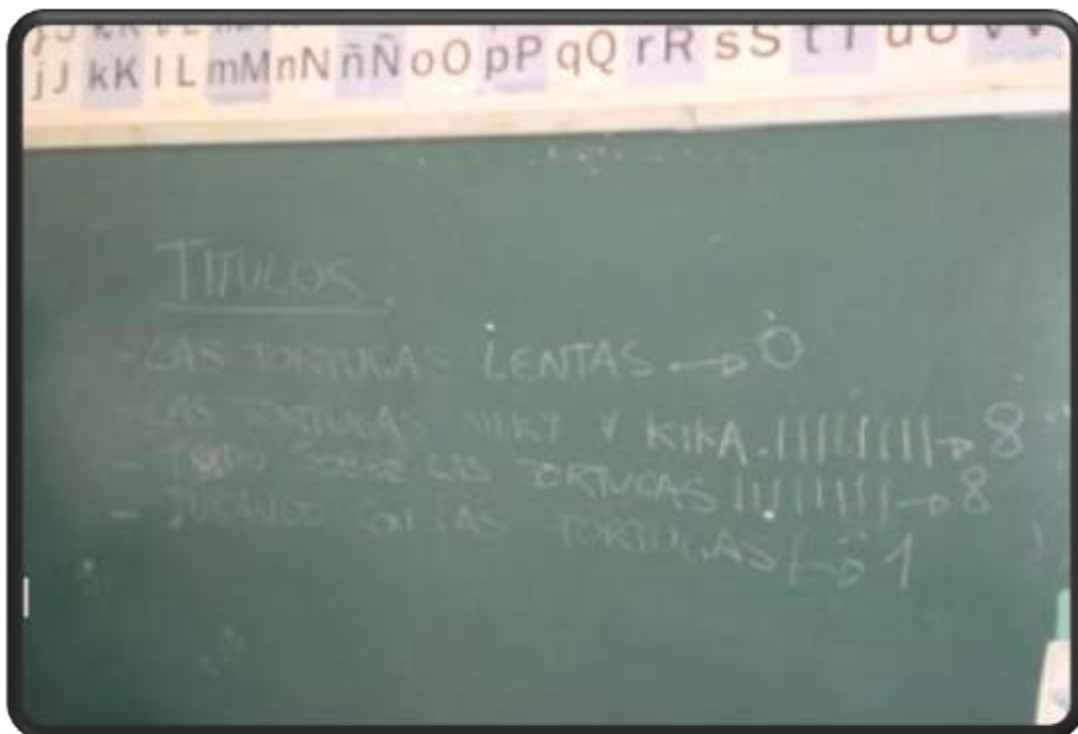 jJ kK lL mM nN ñÑ oO pP qQ rR sS tT uU vV
jJ kK lL mM nN ñÑ oO pP qQ rR sS
TITULOS
- LAS TORTUGAS LENTAS → 0
- LAS TORTUGAS Y KIKA. ||||||||| → 8
- TODO SOBRE LAS TORTUGAS |||||||| → 8
- JUGANDO CON LAS TORTUGAS | → 1